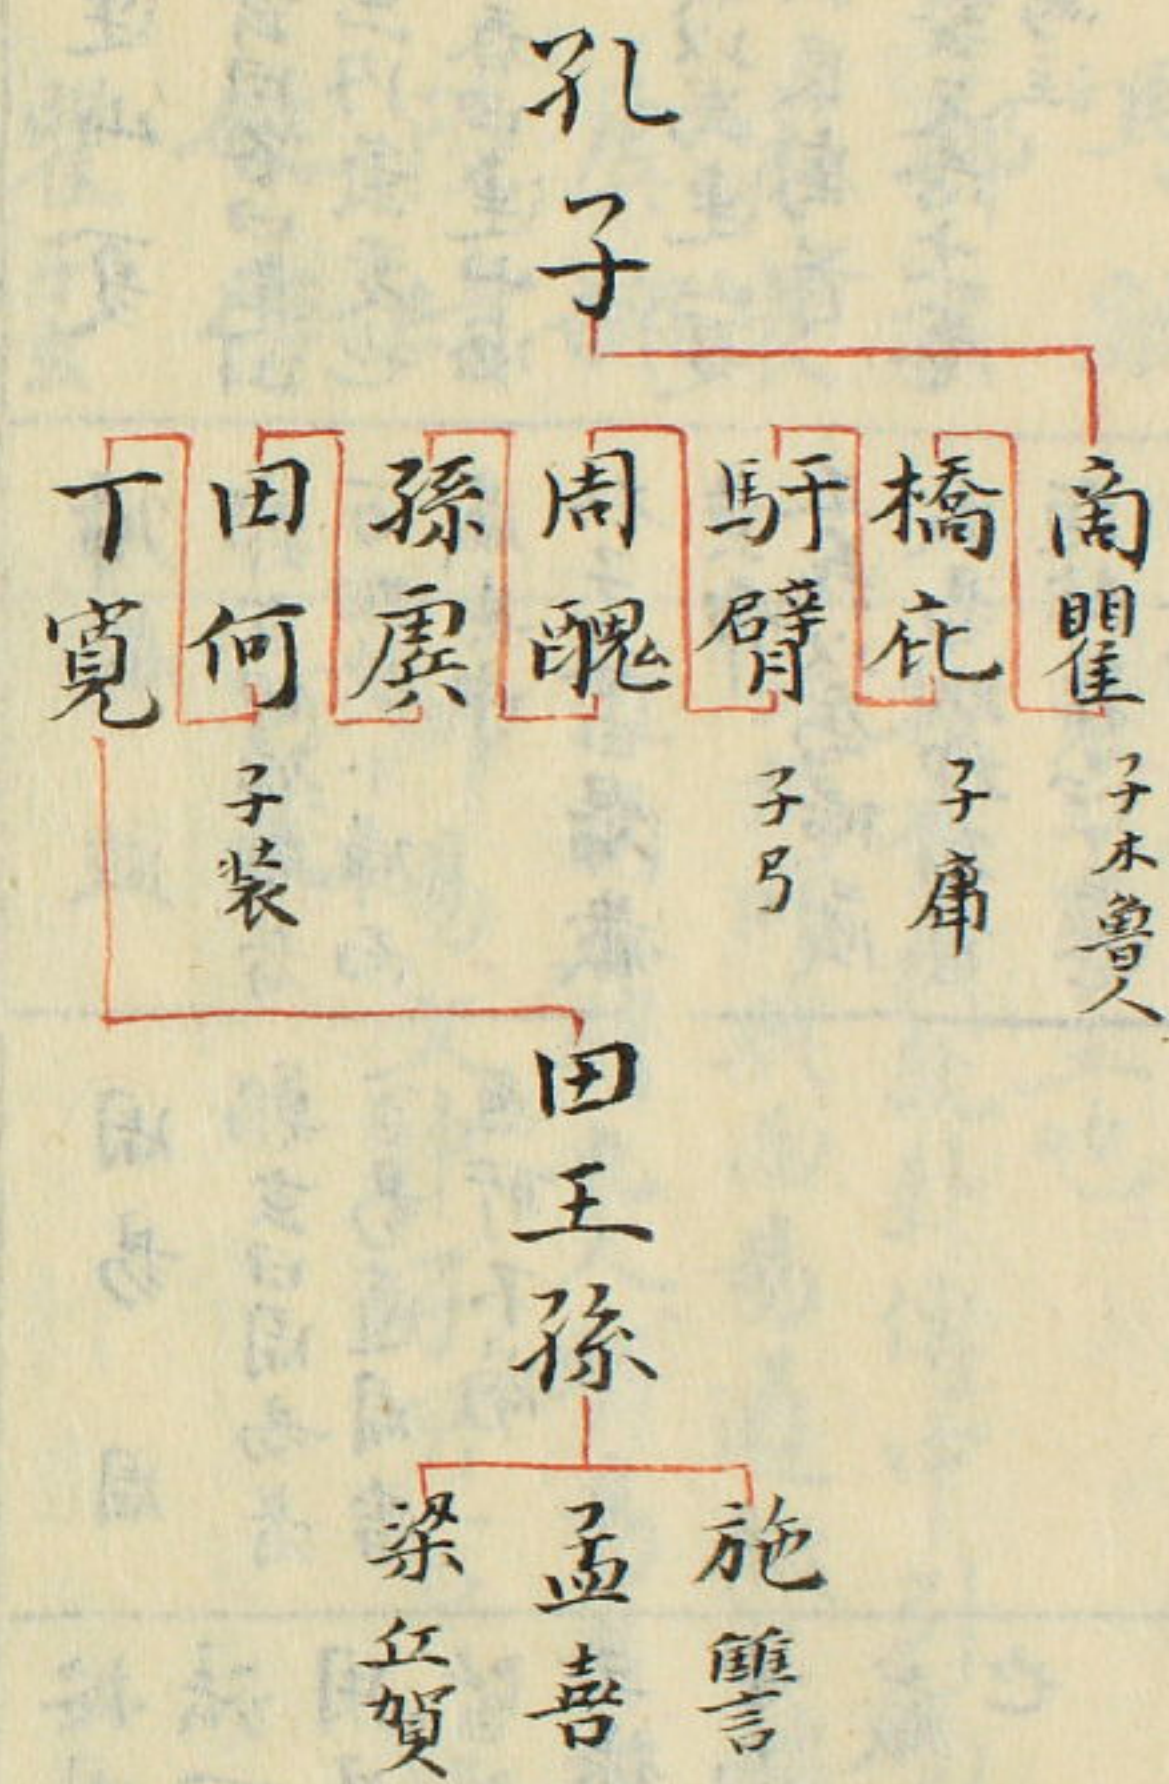 孔子
商瞿 子木魯人
橋庇 子庸
馯臂 子弓
周醜
孫虞
田何 子装
丁寛
田王孫
施讐
孟喜
梁丘賀